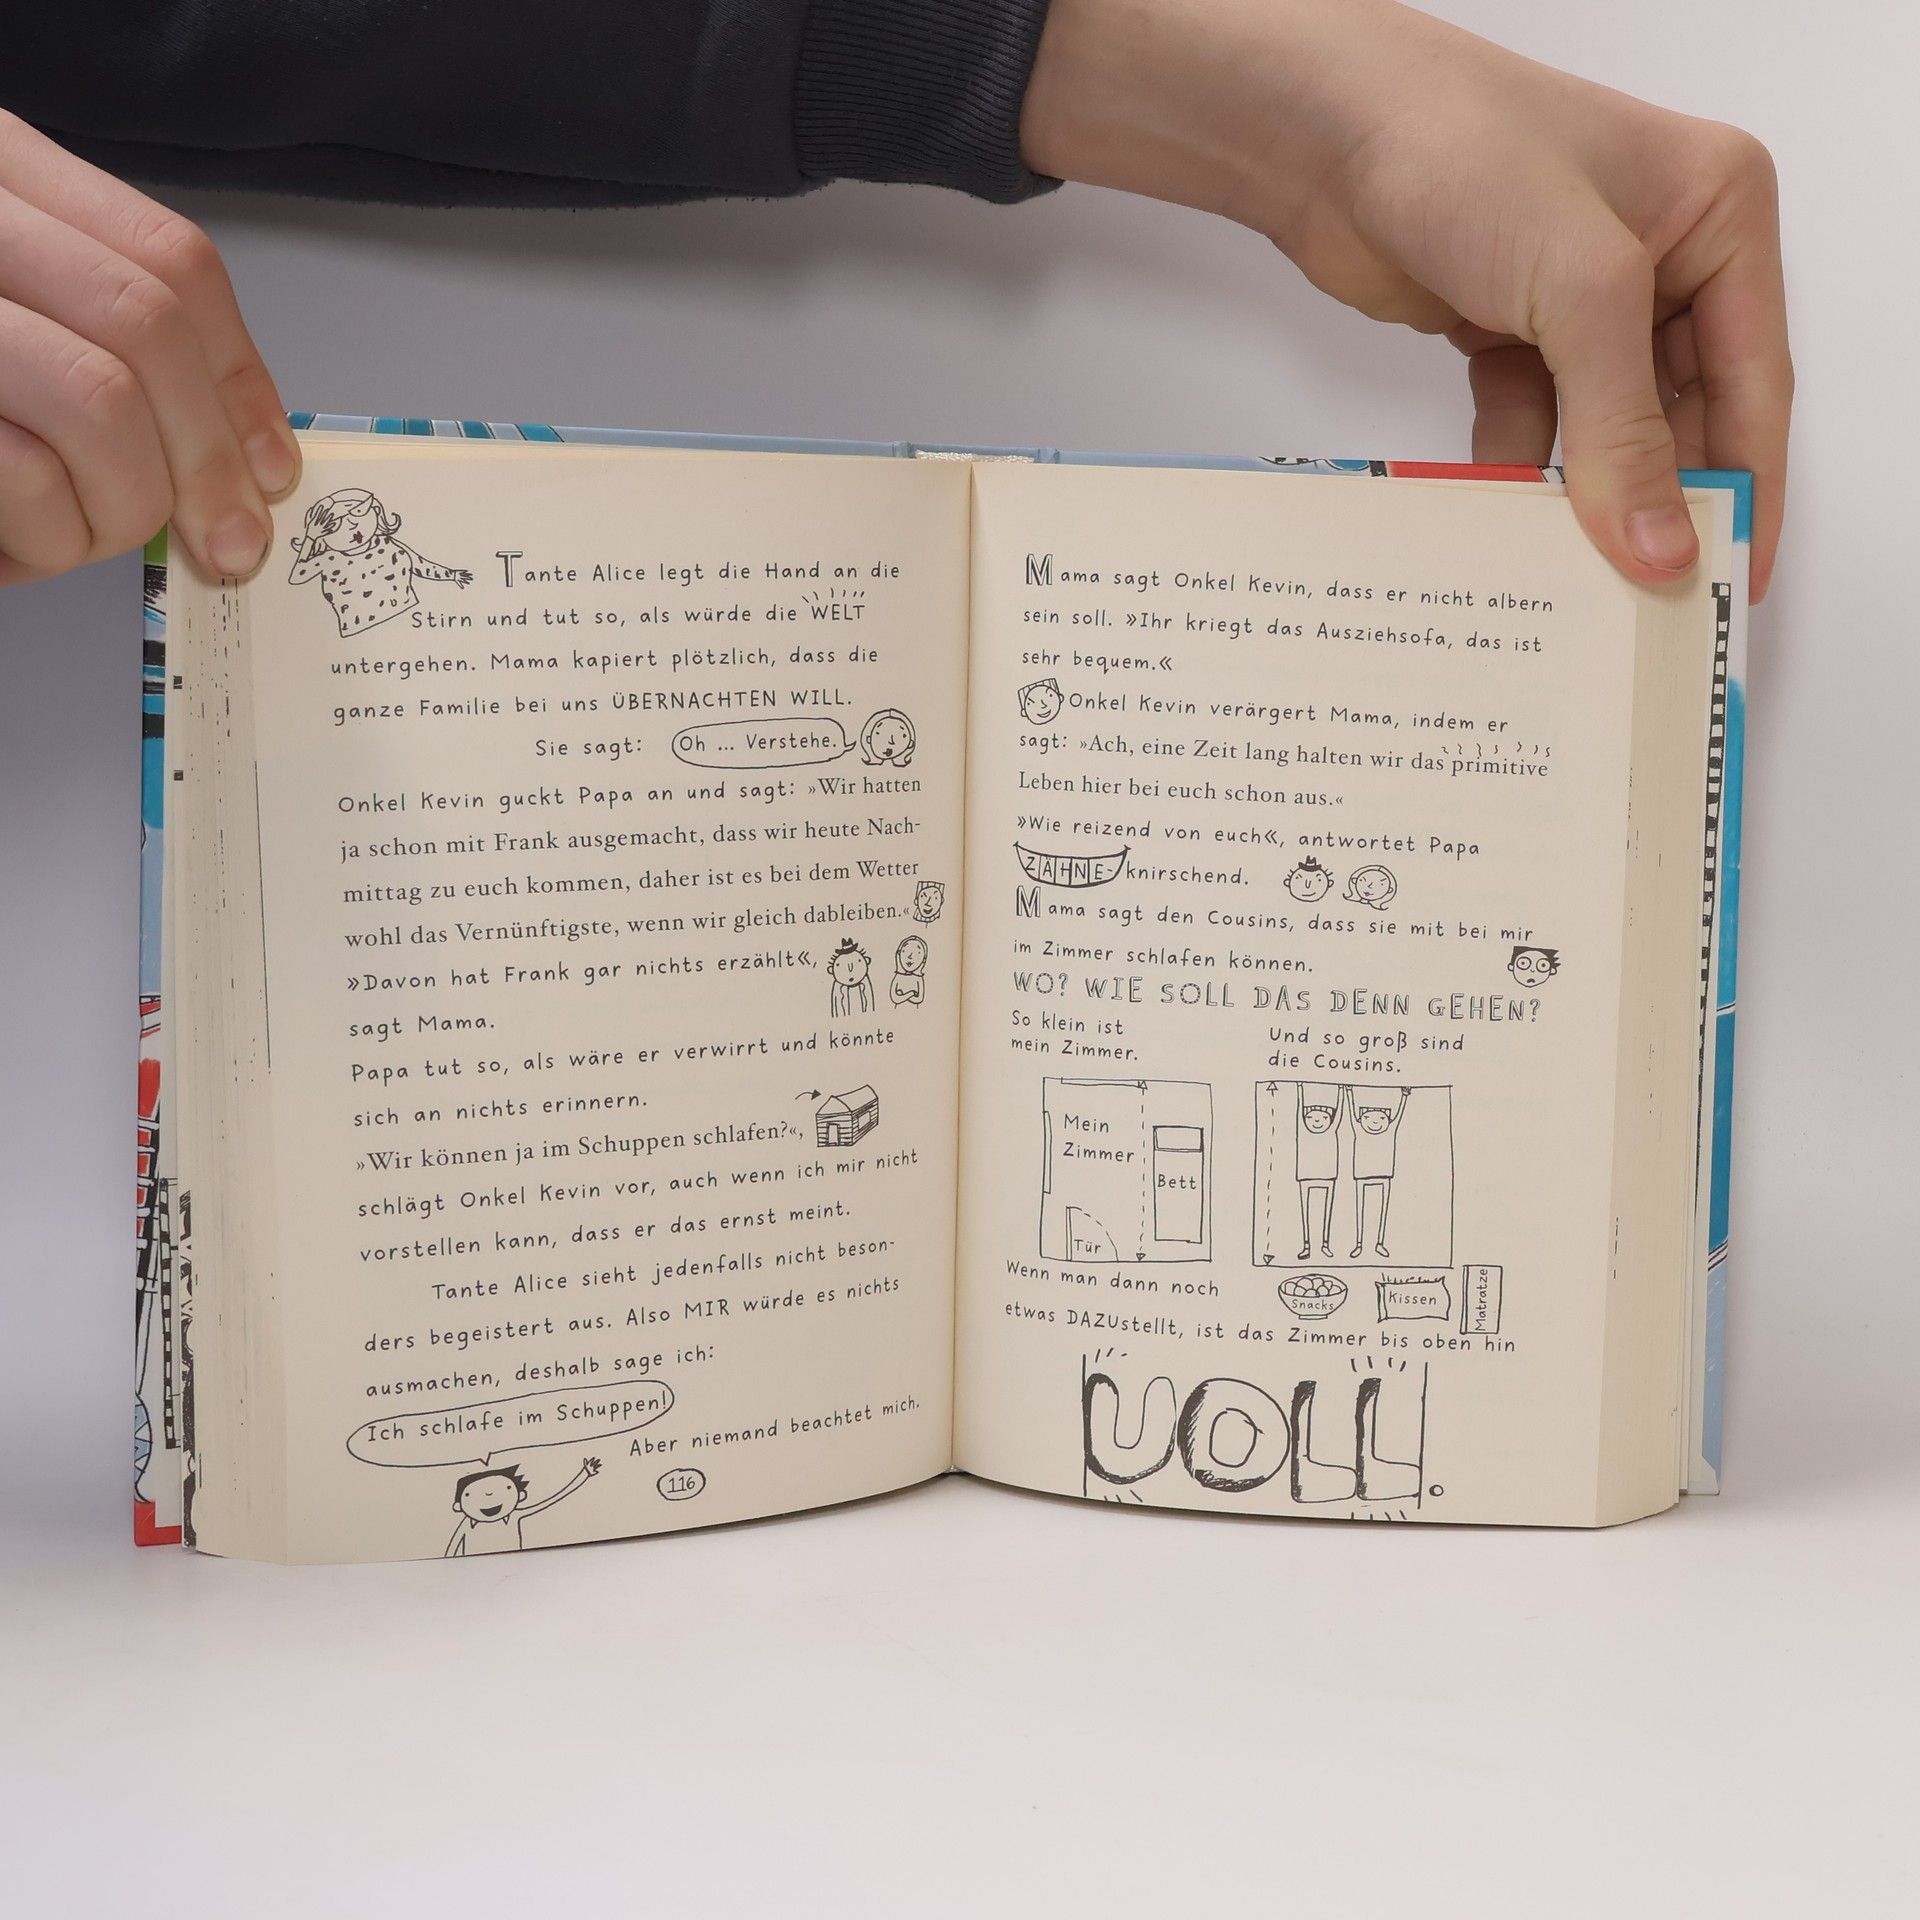 Tante Alice legt die Hand an die
Stirn und tut so, als würde die WELT
untergehen. Mama kapiert plötzlich, dass die
ganze Familie bei uns ÜBERNACHTEN WILL.
Sie sagt: Oh ... Verstehe.
Onkel Kevin guckt Papa an und sagt: »Wir hatten
ja schon mit Frank ausgemacht, dass wir heute Nach-
mittag zu euch kommen, daher ist es bei dem Wetter
wohl das Vernünftigste, wenn wir gleich dableiben.«
»Davon hat Frank gar nichts erzählt«,
sagt Mama.
Papa tut so, als wäre er verwirrt und könnte
sich an nichts erinnern.
»Wir können ja im Schuppen schlafen?«,
schlägt Onkel Kevin vor, auch wenn ich mir nicht
vorstellen kann, dass er das ernst meint.
Tante Alice sieht jedenfalls nicht beson-
ders begeistert aus. Also MIR würde es nichts
ausmachen, deshalb sage ich:
Ich schlafe im Schuppen!
Aber niemand beachtet mich.
116
Mama sagt Onkel Kevin, dass er nicht albern
sein soll. »Ihr kriegt das Ausziehsofa, das ist
sehr bequem.«
Onkel Kevin verärgert Mama, indem er
sagt: »Ach, eine Zeit lang halten wir das primitive
Leben hier bei euch schon aus.«
»Wie reizend von euch«, antwortet Papa
ZÄHNE-knirschend.
Mama sagt den Cousins, dass sie mit bei mir
im Zimmer schlafen können.
WO? WIE SOLL DAS DENN GEHEN?
So klein ist
mein Zimmer.
Und so groß sind
die Cousins.
Mein
Zimmer
Bett
Tür
Wenn man dann noch
Snacks
Kissen
Matratze
etwas DAZUstellt, ist das Zimmer bis oben hin
VOLL.